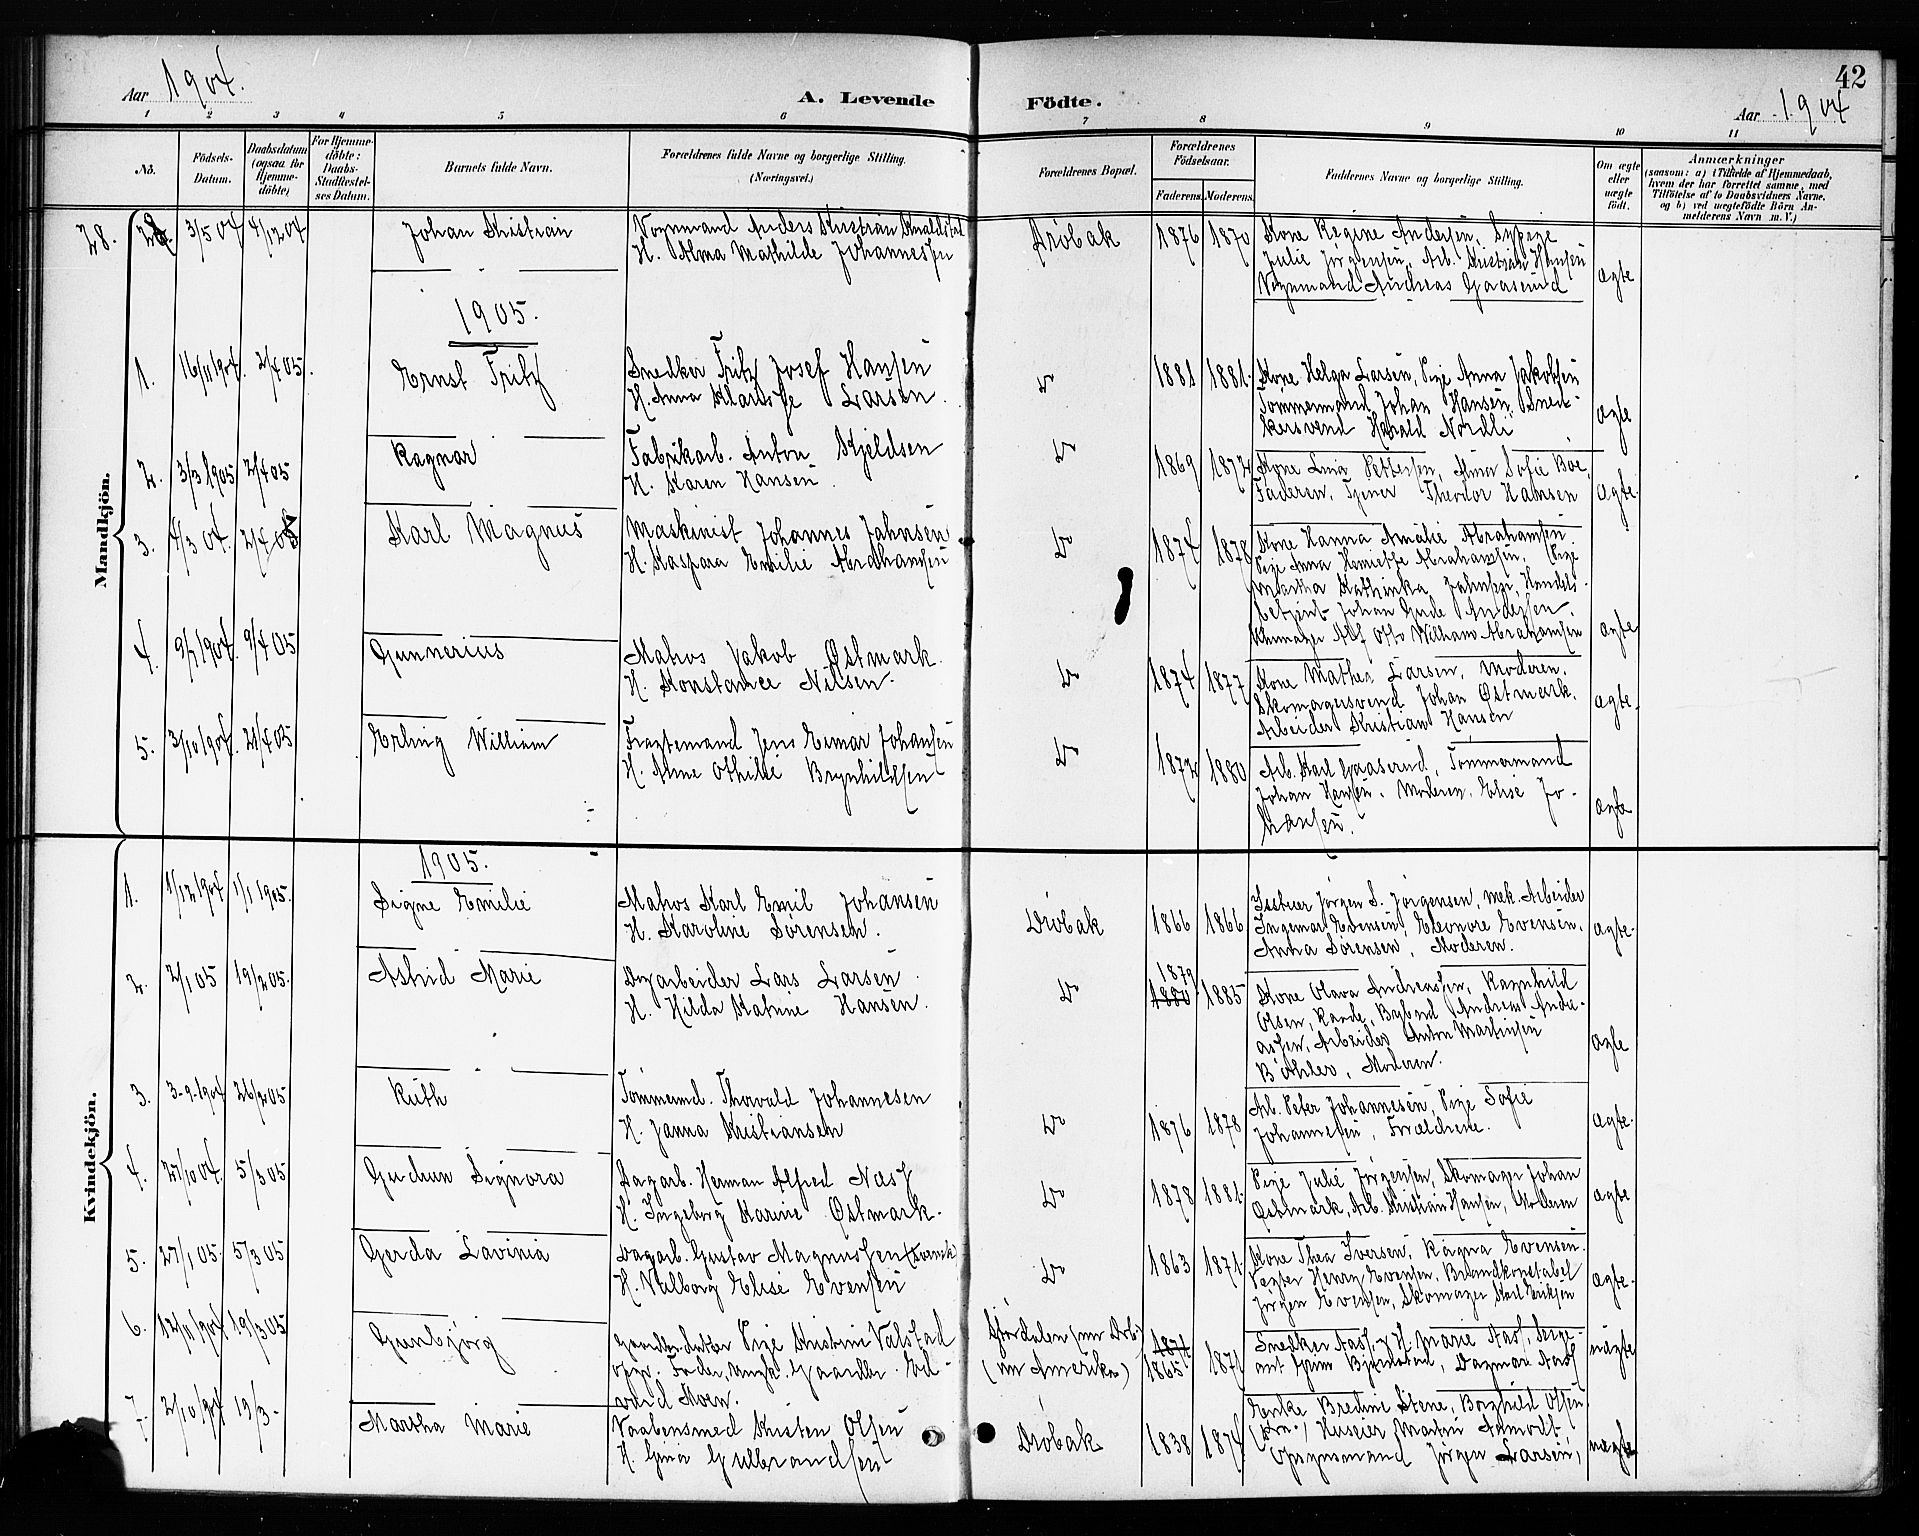 Aar 1904.
A. Levende
Födte.
42
Aar 1904
1 2 3 4 5 6 7 8 9 10 11
No.
Födsels-Datum.
Daabsdatum (ogsaa for Hjemme-döbte)
For Hjemme-döbte: Daabs-Stadfæstel-ses Datum.
Barnets fulde Navn.
Forældrenes fulde Navne og borgerlige Stilling.
(Næringsvei.)
Forældrenes Bopæl.
Forældrenes Födselsaar.
Faderens. Moderens.
Faddernes Navne og borgerlige Stilling.
Om ægte eller uægte födt.
Anmærkninger
(saasom: a) i Tilfælde af Hjemmedaab, hvem der har forrettet samme, med Tilföielse af to Daabsvidners Navne, og b) ved uægtefödte Börn An-melderens Navn m. V.)
Mandkjön.
28. 3/5 04 4/12 04 Johan Kristian
Vognmand Anders Kristian
H. Alma Mathilde Johannesen
Dröbak 1876 1870
Kone Regine Andersen, Sypige
Julie Jörgensen, Arb. Kristian Hansen
Vognmand Andreas Gaaserud
ægte
1905.
1. 16/11 1904. 2/4 05. Ernst Fritz
Snedker Fritz Josef Hansen
H. Anna Larsen.
Do 1881 1881.
Kone Helga Larsen, Pige Anna Jakobsen
Tömmermand Johan Hansen, Sned-
kersvend Harald Nordli
ægte
2. 3/3 1905 2/4 05 Ragnar
Fabrikarb. Anton Kjeldsen
H. Karen Hansen.
Do 1869 1872
Kone Lina Pettersen, Anna Sofie Böe
Faderen, Tjener Theodor Hansen
ægte.
3. 4/3 04. 2/4 05 Karl Magnus
Maskinist Johannes Jahnsen
H. Kaspara Emilie Abrahamsen
Do 1874 1878
Kone Hanna Amalie Abrahamsen.
Pige Anna Henriette Abrahamsen, Pige
Martha Kathinka Jahnsen, Handels-
betjent Johan Gude Andersen,
Alf Otto William Abrahamsen
ægte
4. 9/7 1904. 9/4 05 Gunnerius
Matros Jakob Östmark.
H. Konstance Nilsen.
Do 1874 1877
Kone Mathea Larsen, Moderen,
Skomagersvend Johan Östmark,
Arbeider Kristian Hansen
ægte.
5. 3/10 1904. 21/4 05 Erling William
Fragtemand Jens Eimar Johansen
H. Alma Othilie Brynhildsen
Do 1872 1880
Arb. Karl Gaaserud, Tömmermand
Johan Hansen, Moderen, Elise Jo-
hansen.
ægte
Kvindekjön.
1905.
1. 1/12 1904 1/1 1905. Signe Emilie
Matros Karl Emil Johansen
H. Karoline Sörensen.
Dröbak 1866 1866
Jörgen S. Jörgensen, mek. Arbeider
Ingemar Evensen, Eleonore Evensen,
Anna Sörensen, Moderen.
ægte.
2. 2/1 05 19/2 05. Astrid Marie
Dagarbeider Lars Larsen
H. Hilda Katrine Hansen.
Do 1879
1880 1885
Kone Olava Andreassen, Ragnhild
Olsen, Raade, Andreas Andre-
assen, Arbeider Anton Martinsen
Moderen.
ægte
3. 3-9-1904 26/2 05 Ruth
Tömmermd. Thorvald Johannesen
H. Janna Kristiansen
Do 1876 1878
Arb. Peter Johannesen, Pige Sofie
Johannesen, Forældrene.
ægte.
4. 27/10 04. 5/3 05 Gudrun Signora
Dagarb. Herman Alfred Næss
H. Ingeborg Karine Östmark.
Do 1878 1881.
Pige Julie Jörgensen, Skomager Johan
Östmark, Arb. Kristian Hansen, Moderen
ægte
5. 27/1 05 5/3 05 Gerda Lavinia
Dagarb. Gustav Magnussen (svensk)
H. Valborg Elise Evensen
Do 1863 1871.
Kone Thea Iversen, Ragna Evensen.
Vægter Henry Evensen, Brandkonstabel
Jörgen Evensen, Skomager Karl Eriksen
ægte.
6. 12/11 1904 19/3 05 Gunbjörg
Gaardm.datter Pige Kristine Valstad
opg. Fader, ungk. Gaardbr. Ed-
vard Moen.
(nu Drb)
(nu Amerika)
1865 1871
Snedker Aas, & H. Marie Aas, Serge-
ant Bjerkestad, Dagmar Aas
uægte
7. 2/10 1904 19/3 - Martha Marie
Vaabensmed Kristen Olsen
H. Gina Gulbrandsen
Dröbak 1838 1874.
Enke Bredine Stene, Borghild Olsen
(Kra.) Huseier Martin Aamodt
Opsynsmand Jörgen Larsen,
uægte